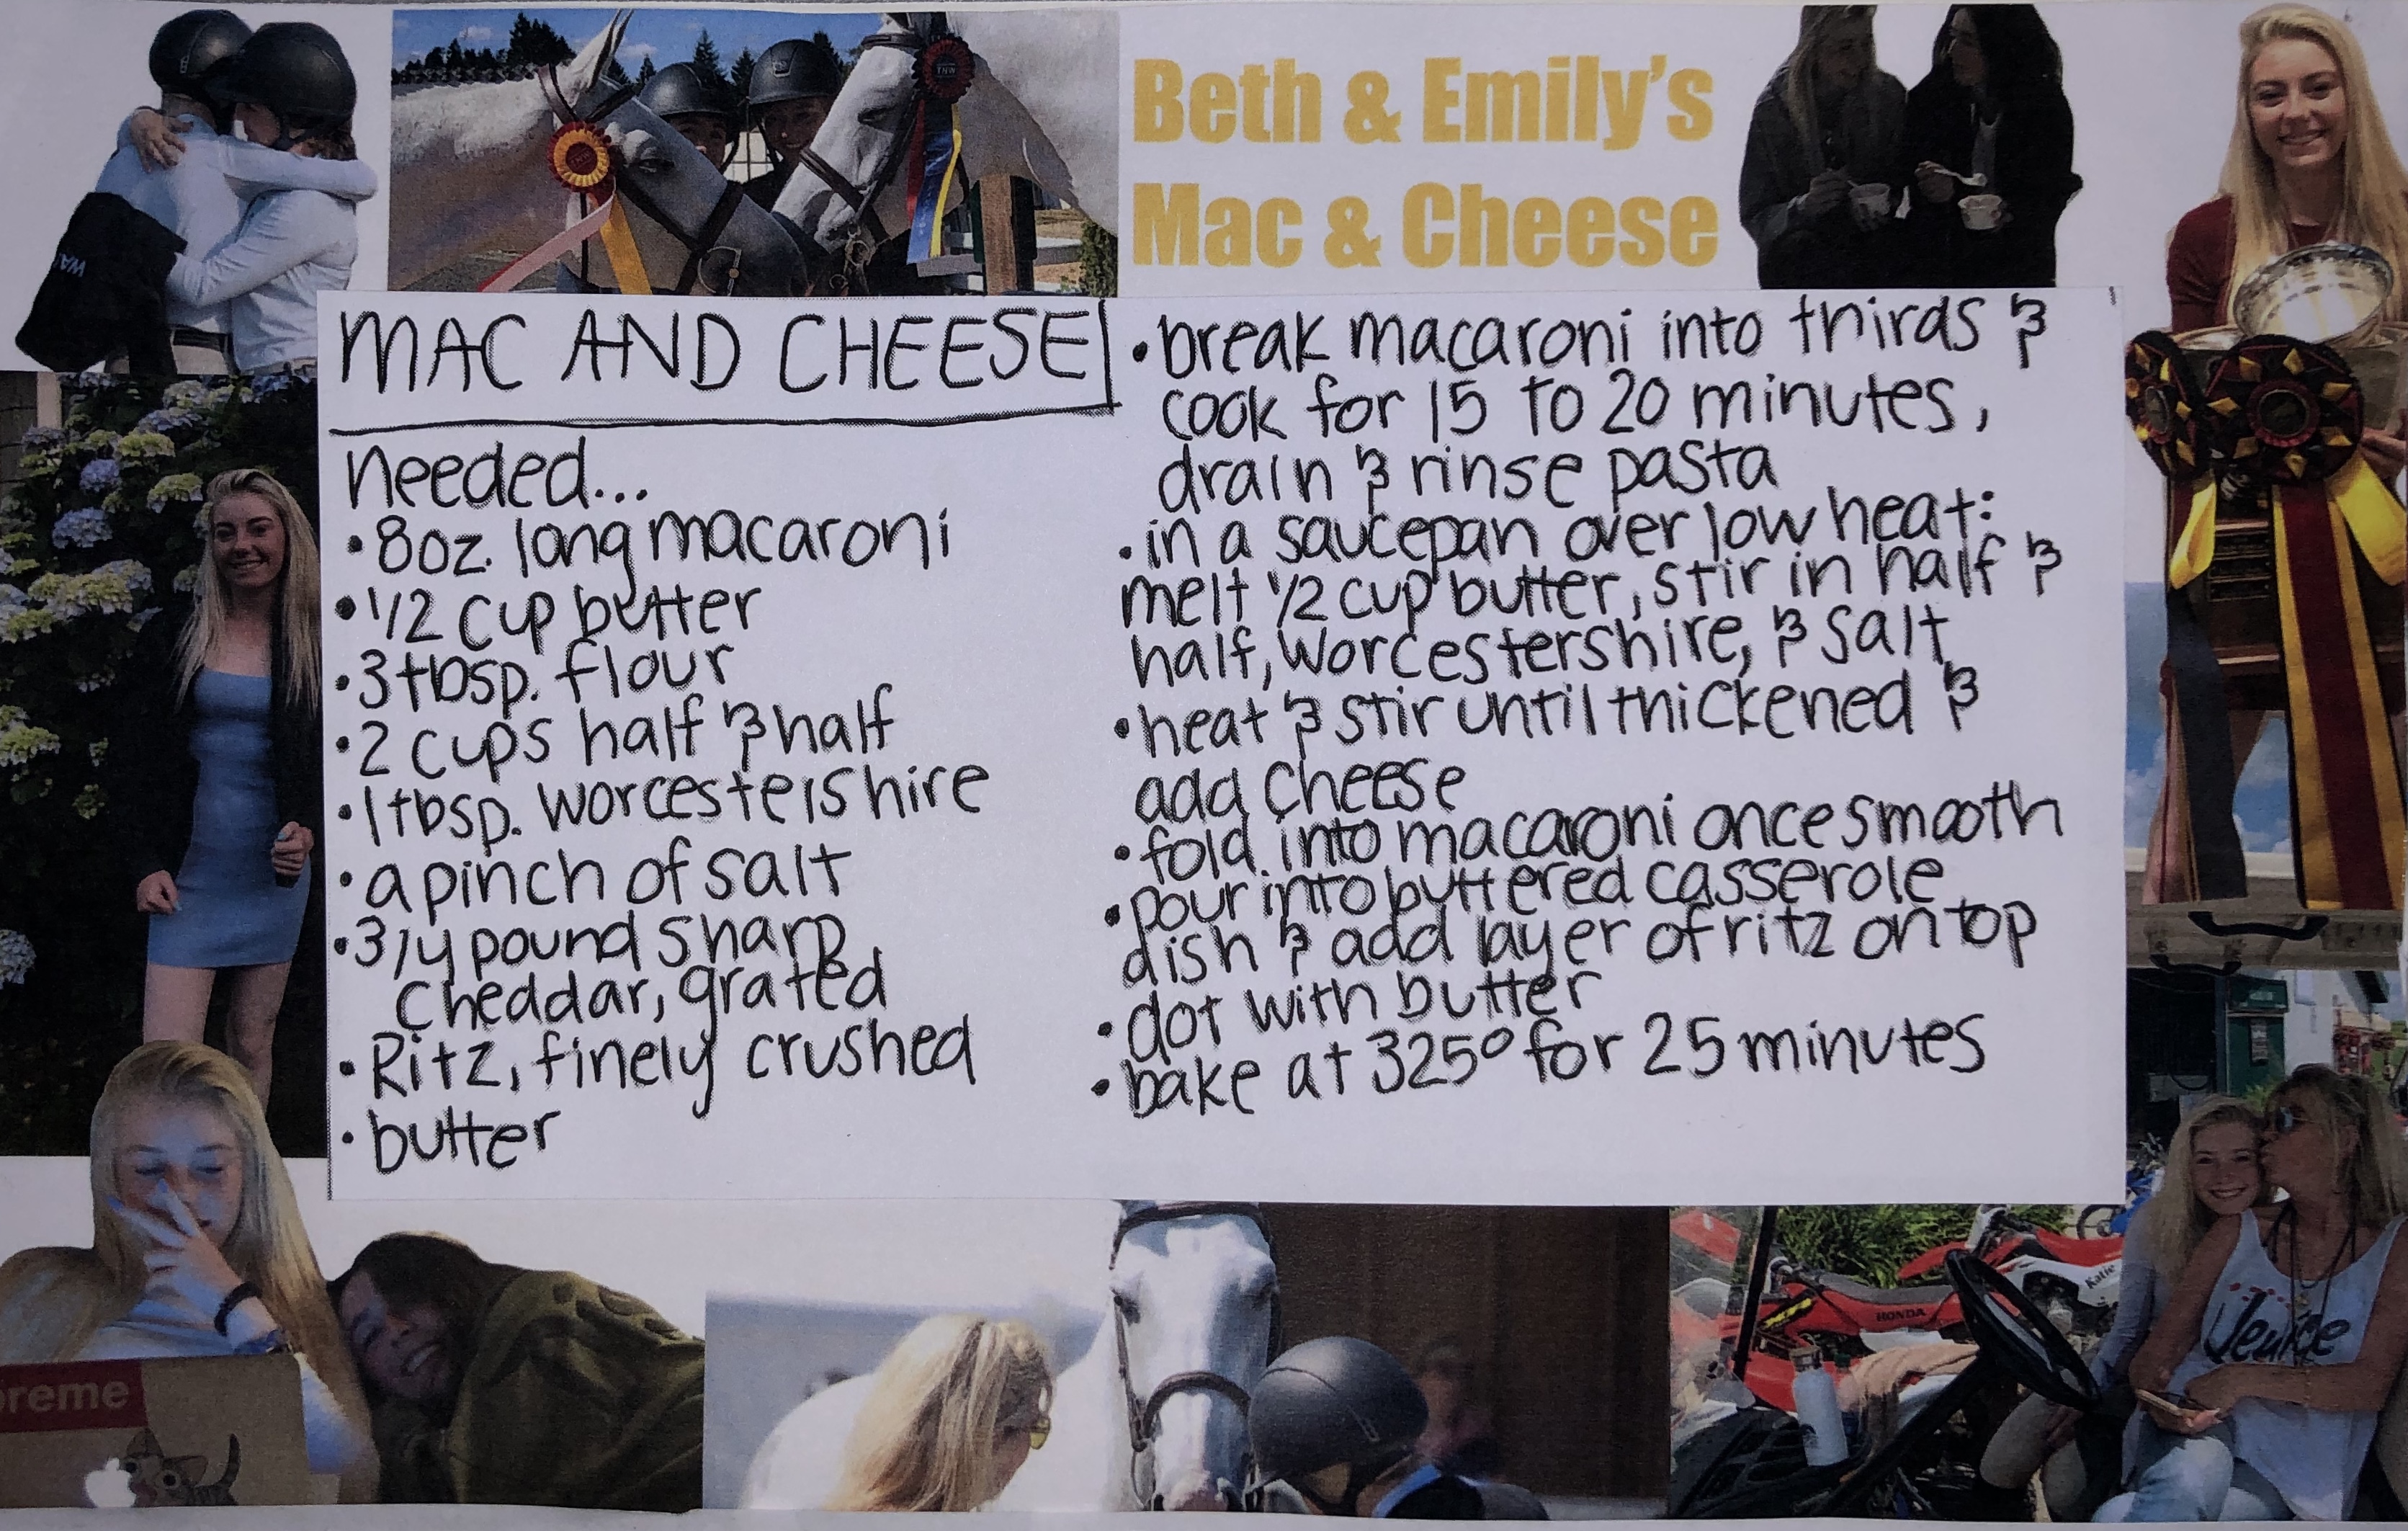 Beth & Emily's
Mac & Cheese
MAC AND CHEESE
needed...
• 8oz. long macaroni
• 1/2 cup butter
• 3 tbsp. flour
• 2 cups half & half
• 1 tbsp. worcestershire
• a pinch of salt
• 3/4 pound sharp
cheddar, grated
• Ritz, finely crushed
• butter
• break macaroni into thirds &
cook for 15 to 20 minutes,
drain & rinse pasta
• in a saucepan over low heat:
melt 1/2 cup butter, stir in half &
half, worcestershire, & salt
• heat & stir until thickened &
add cheese
• fold into macaroni once smooth
• pour into buttered casserole
dish & add layer of ritz on top
• dot with butter
• bake at 325° for 25 minutes
TNW
TNW
WA
preme
HONDA
Katie
Venice